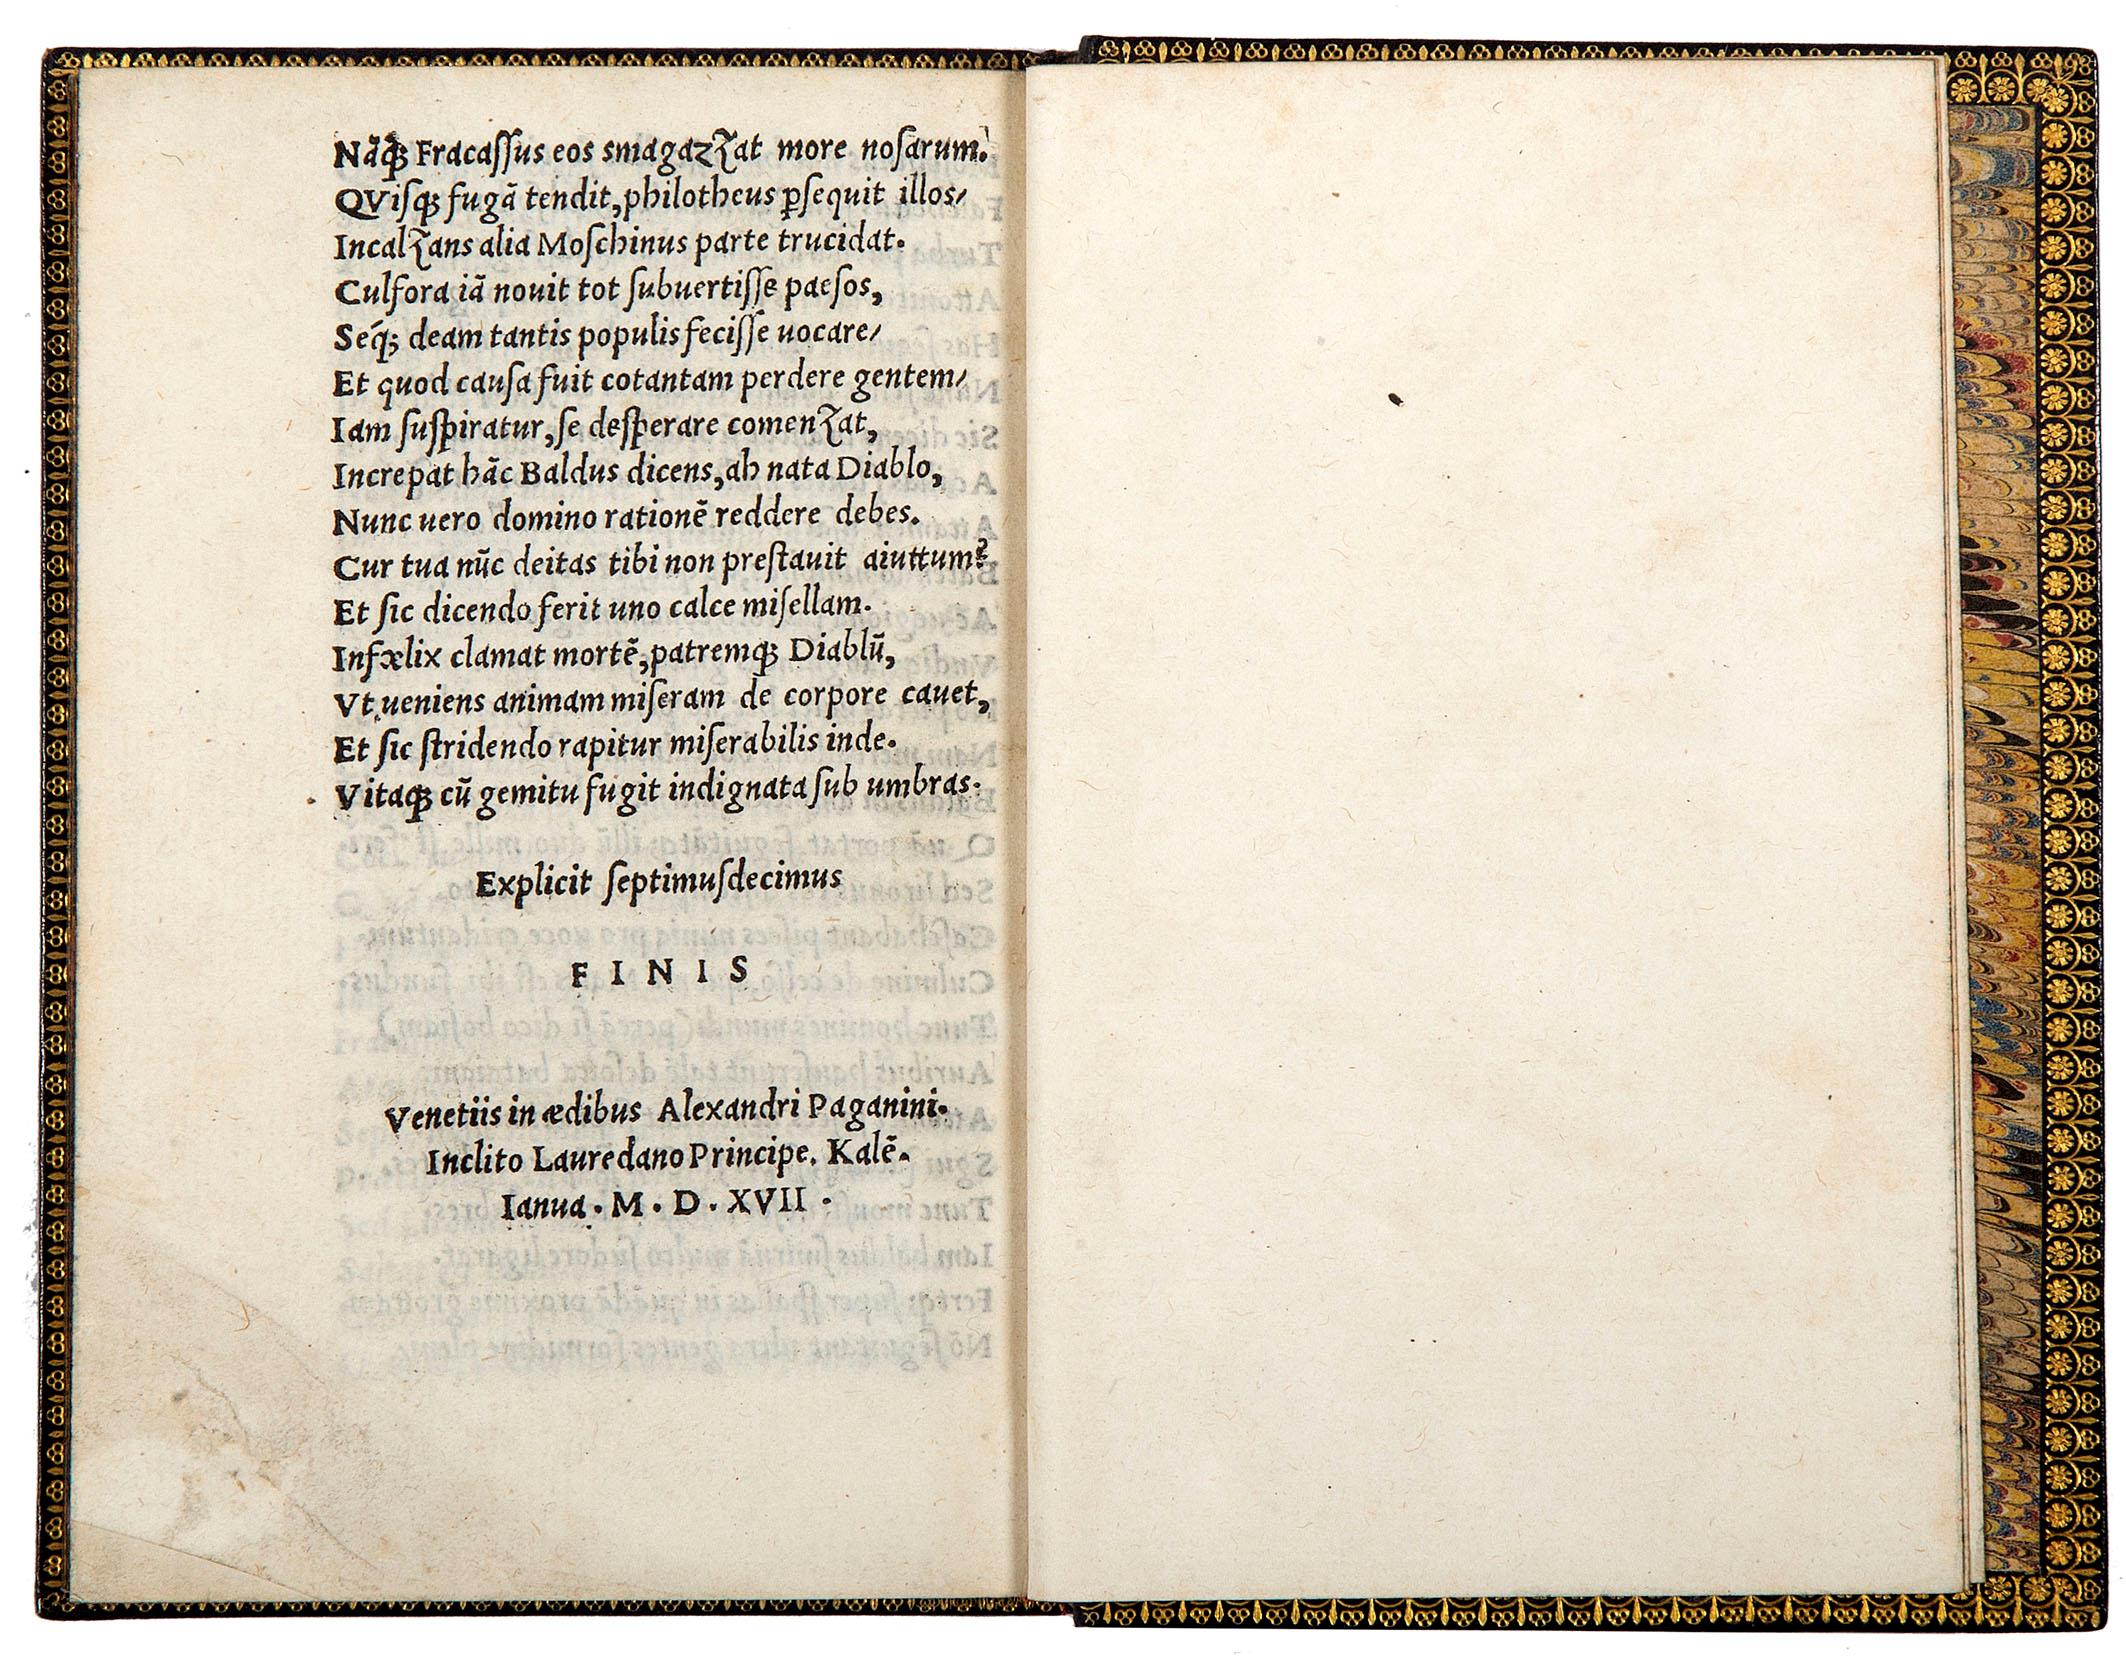 Nãq̃ʒ Fracaſſus eos smagazʒat more noſarum.
QViſqʒ fugã tendit, philotheus ꝑſequit illos/
Incalʒans alia Moſchinus parte trucidat.
Culfora iã nouit tot ſubuertiſſe paeſos,
Seq́ʒ deam tantis populis feciſſe uocare/
Et quod cauſa fuit cotantam perdere gentem/
Iam ſuſpiratur, ſe deſperare comenʒat,
Increpat hãc Baldus dicens, ah nata Diablo,
Nunc uero domino rationẽ reddere debes.
Cur tua nũc deitas tibi non preſtauit aiuttum?
Et ſic dicendo ferit uno calce miſellam.
Infælix clamat mortẽ, patremqʒ Diablũ,
Vt ueniens animam miſeram de corpore cauet,
Et ſic ſtridendo rapitur miſerabilis inde.
Vitaqʒ cũ gemitu fugit indignata ſub umbras.
Explicit ſeptimuſdecimus
F I N I S
Venetiis in ædibus Alexandri Paganini.
Inclito Lauredano Principe. Kalẽ.
Ianua. M. D. XVII.